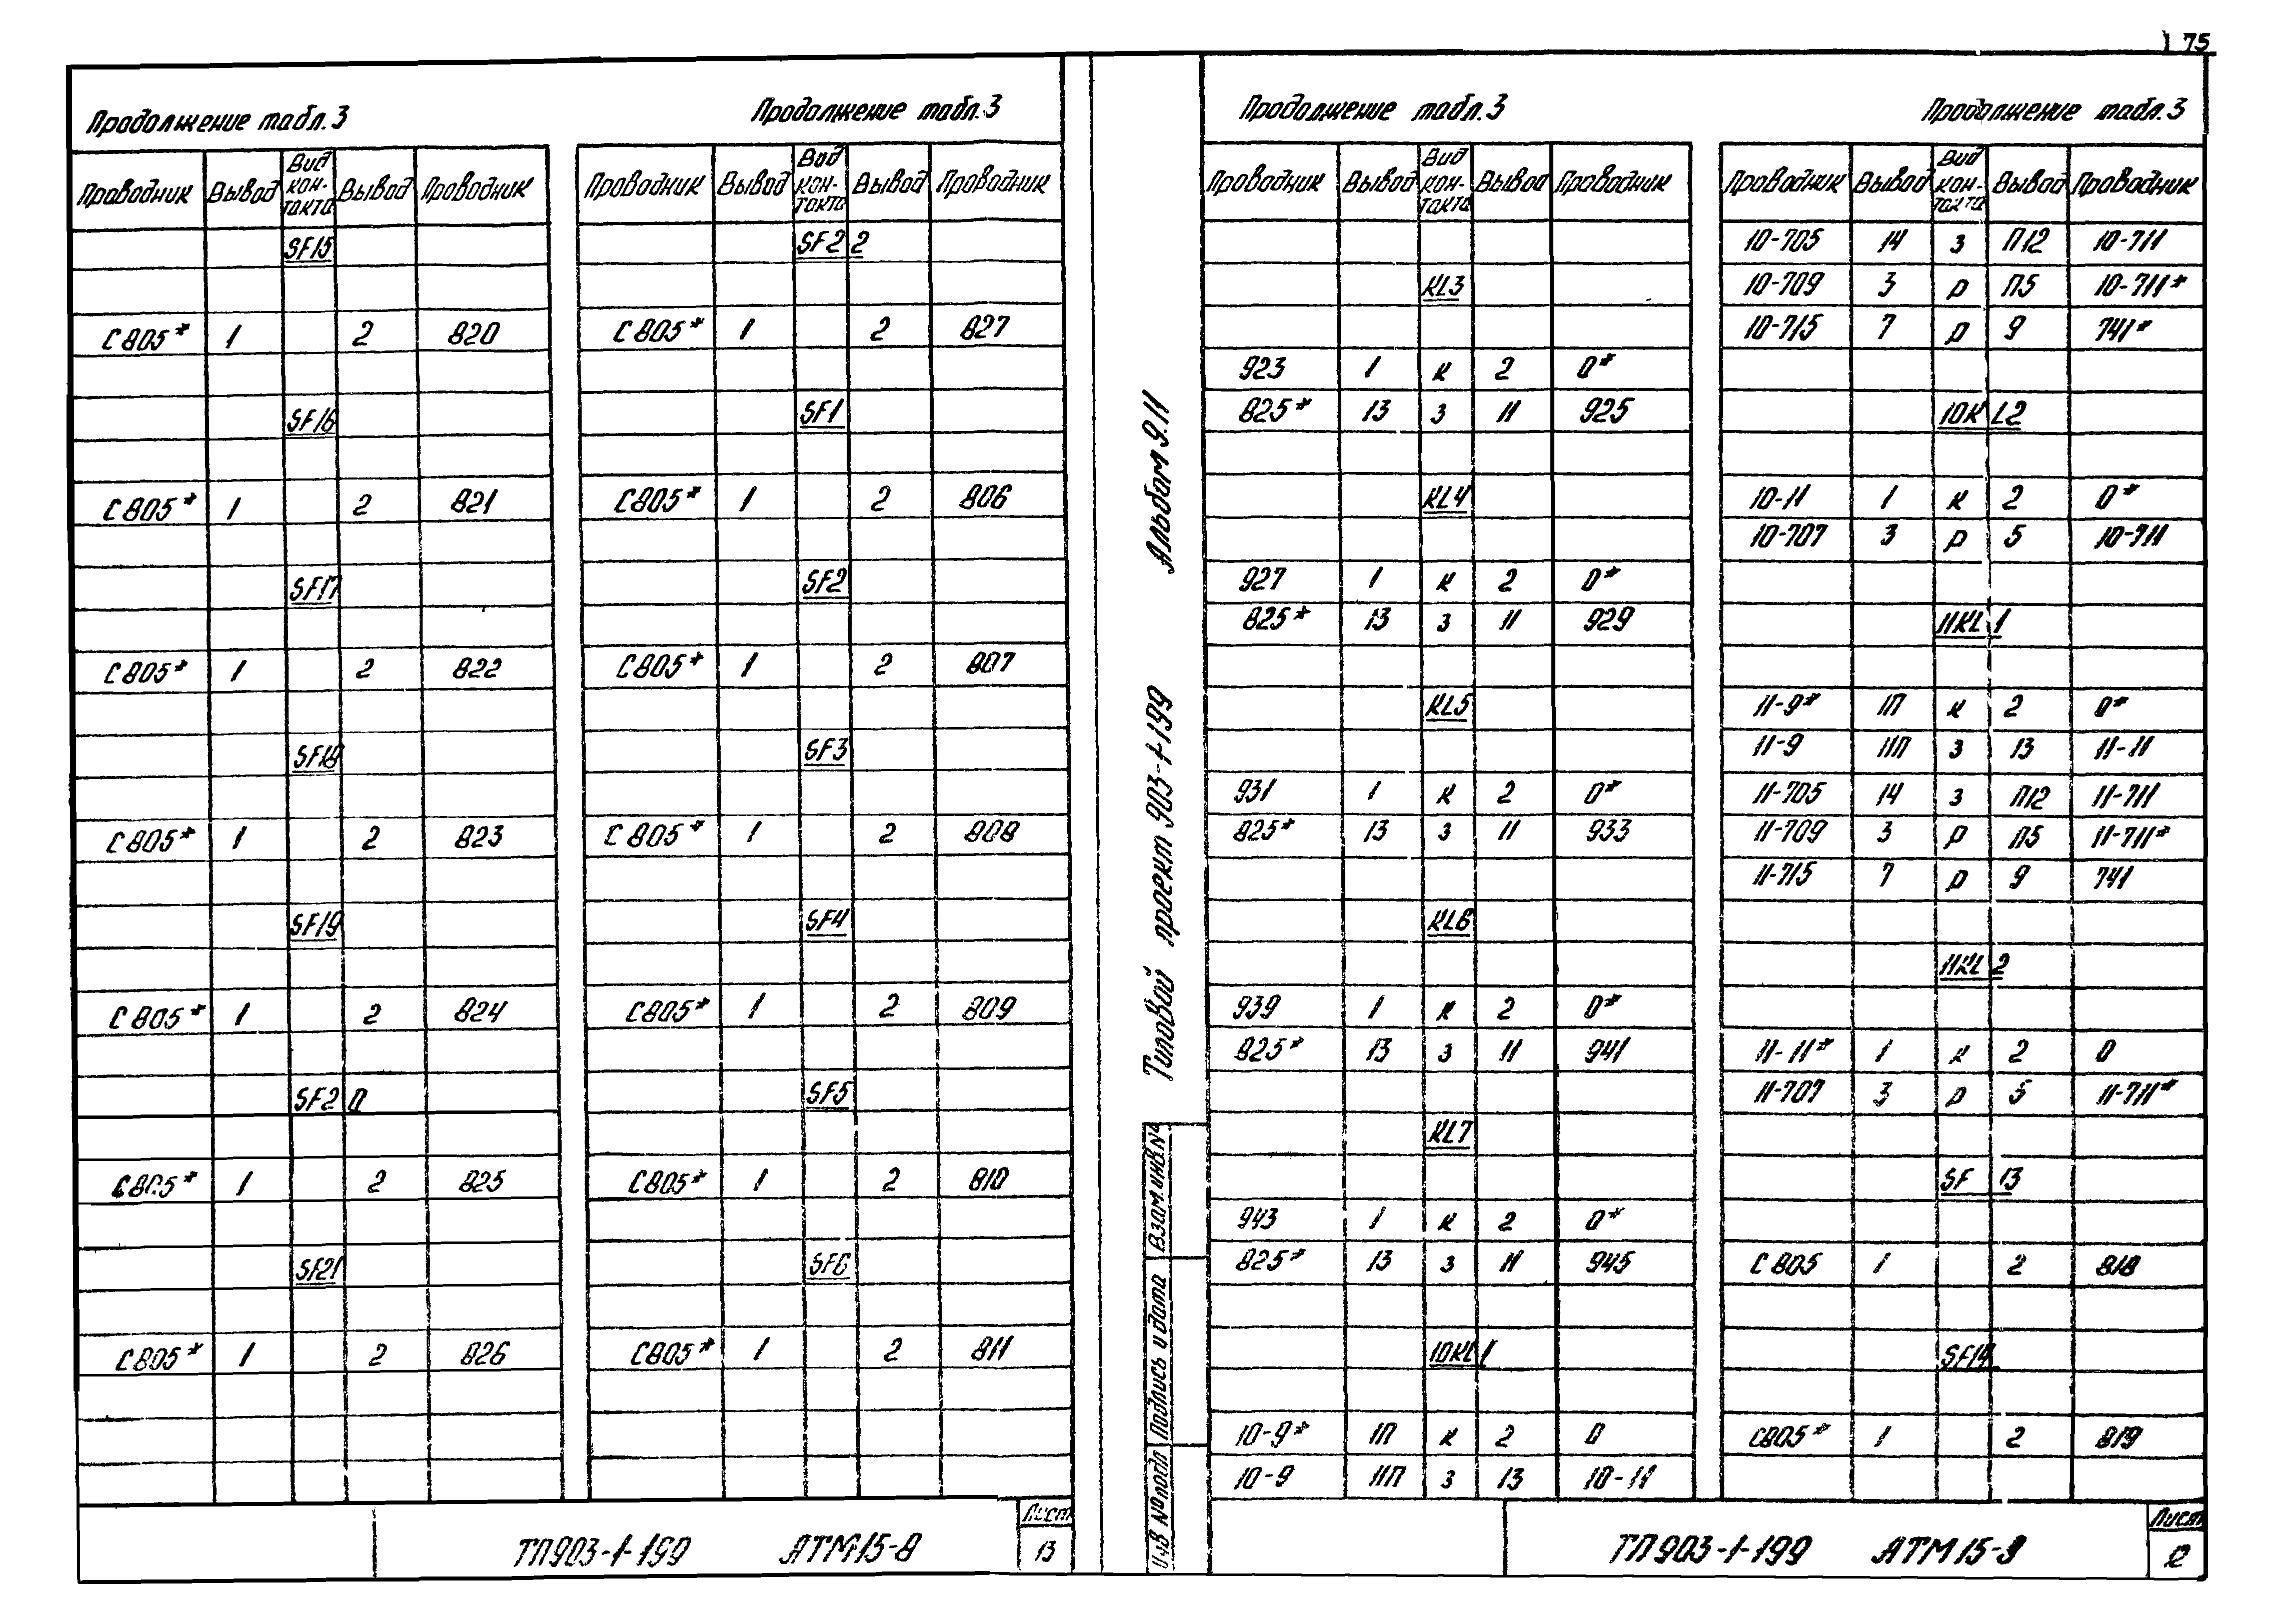 75
Продолжение табл.3
Продолжение табл.3
Проводник Вывод Вид кон-такта Вывод Проводник
SF15
С805* 1 2 820
SF16
С805* 1 2 821
SF17
С805* 1 2 822
SF18
С805* 1 2 823
SF19
С805* 1 2 824
SF20
С805* 1 2 825
SF21
С805* 1 2 826
Проводник Вывод Вид кон-такта Вывод Проводник
SF22
С805* 1 2 827
SF1
С805* 1 2 806
SF2
С805* 1 2 807
SF3
С805* 1 2 808
SF4
С805* 1 2 809
SF5
С805* 1 2 810
SF6
С805* 1 2 811
ТП903-1-199 АТМ15-8
Лист
13
Типовой проект 903-1-199 Альбом 9.11
Взам.инв.№
Подпись и дата
Инв №подл
Продолжение табл.3
Продолжение табл.3
Проводник Вывод Вид кон-такта Вывод Проводник
KL3
923 1 к 2 0*
825* 13 з 11 925
KL4
927 1 к 2 0*
825* 13 з 11 929
KL5
931 1 к 2 0*
825* 13 з 11 933
KL6
939 1 к 2 0*
825* 13 з 11 941
KL7
943 1 к 2 0*
825* 13 з 11 945
10KL1
10-9* 1П к 2 0
10-9 11П з 13 10-11
Проводник Вывод Вид кон-такта Вывод Проводник
10-705 14 з П12 10-711
10-709 3 р П5 10-711*
10-715 7 р 9 741*
10KL2
10-11 1 к 2 0*
10-707 3 р 5 10-711
11KL1
11-9* 1П к 2 0*
11-9 11П з 13 11-11
11-705 14 з П12 11-711
11-709 3 р П5 11-711*
11-715 7 р 9 741
11KL2
11-11* 1 к 2 0
11-707 3 р 5 11-711*
SF 13
С805 1 2 818
SF14
С805* 1 2 819
ТП903-1-199 АТМ15-8
Лист
12